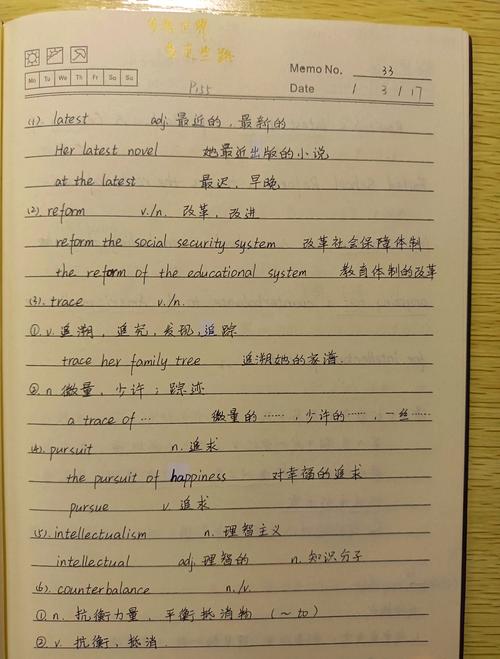 Memo No. 33
Mo Tu We Th Fr Sa Su
Date 1 3 1 17
P155
(1). latest adj. 最近的，最新的
Her latest novel 她最近出版的小说
at the latest 最迟，早晚
(2) reform v./n. 改革，改进
reform the social security system 改革社会保障体制
the reform of the educational system 教育体制的改革
(3). trace v./n.
①v. 追溯，追究，发现，追踪
trace her family tree 追溯她的家谱.
②n 微量，少许；踪迹
a trace of … 微量的……，少许的……，一丝……
(4). pursuit n. 追求
the pursuit of happiness 对幸福的追求
pursue v. 追求
(5). intellectualism n. 理智主义
intellectual adj. 理智的 n. 知识分子
(6). counterbalance n./v.
①n. 抗衡力量，平衡抵消物 (~ to)
②v. 抗衡，抵消